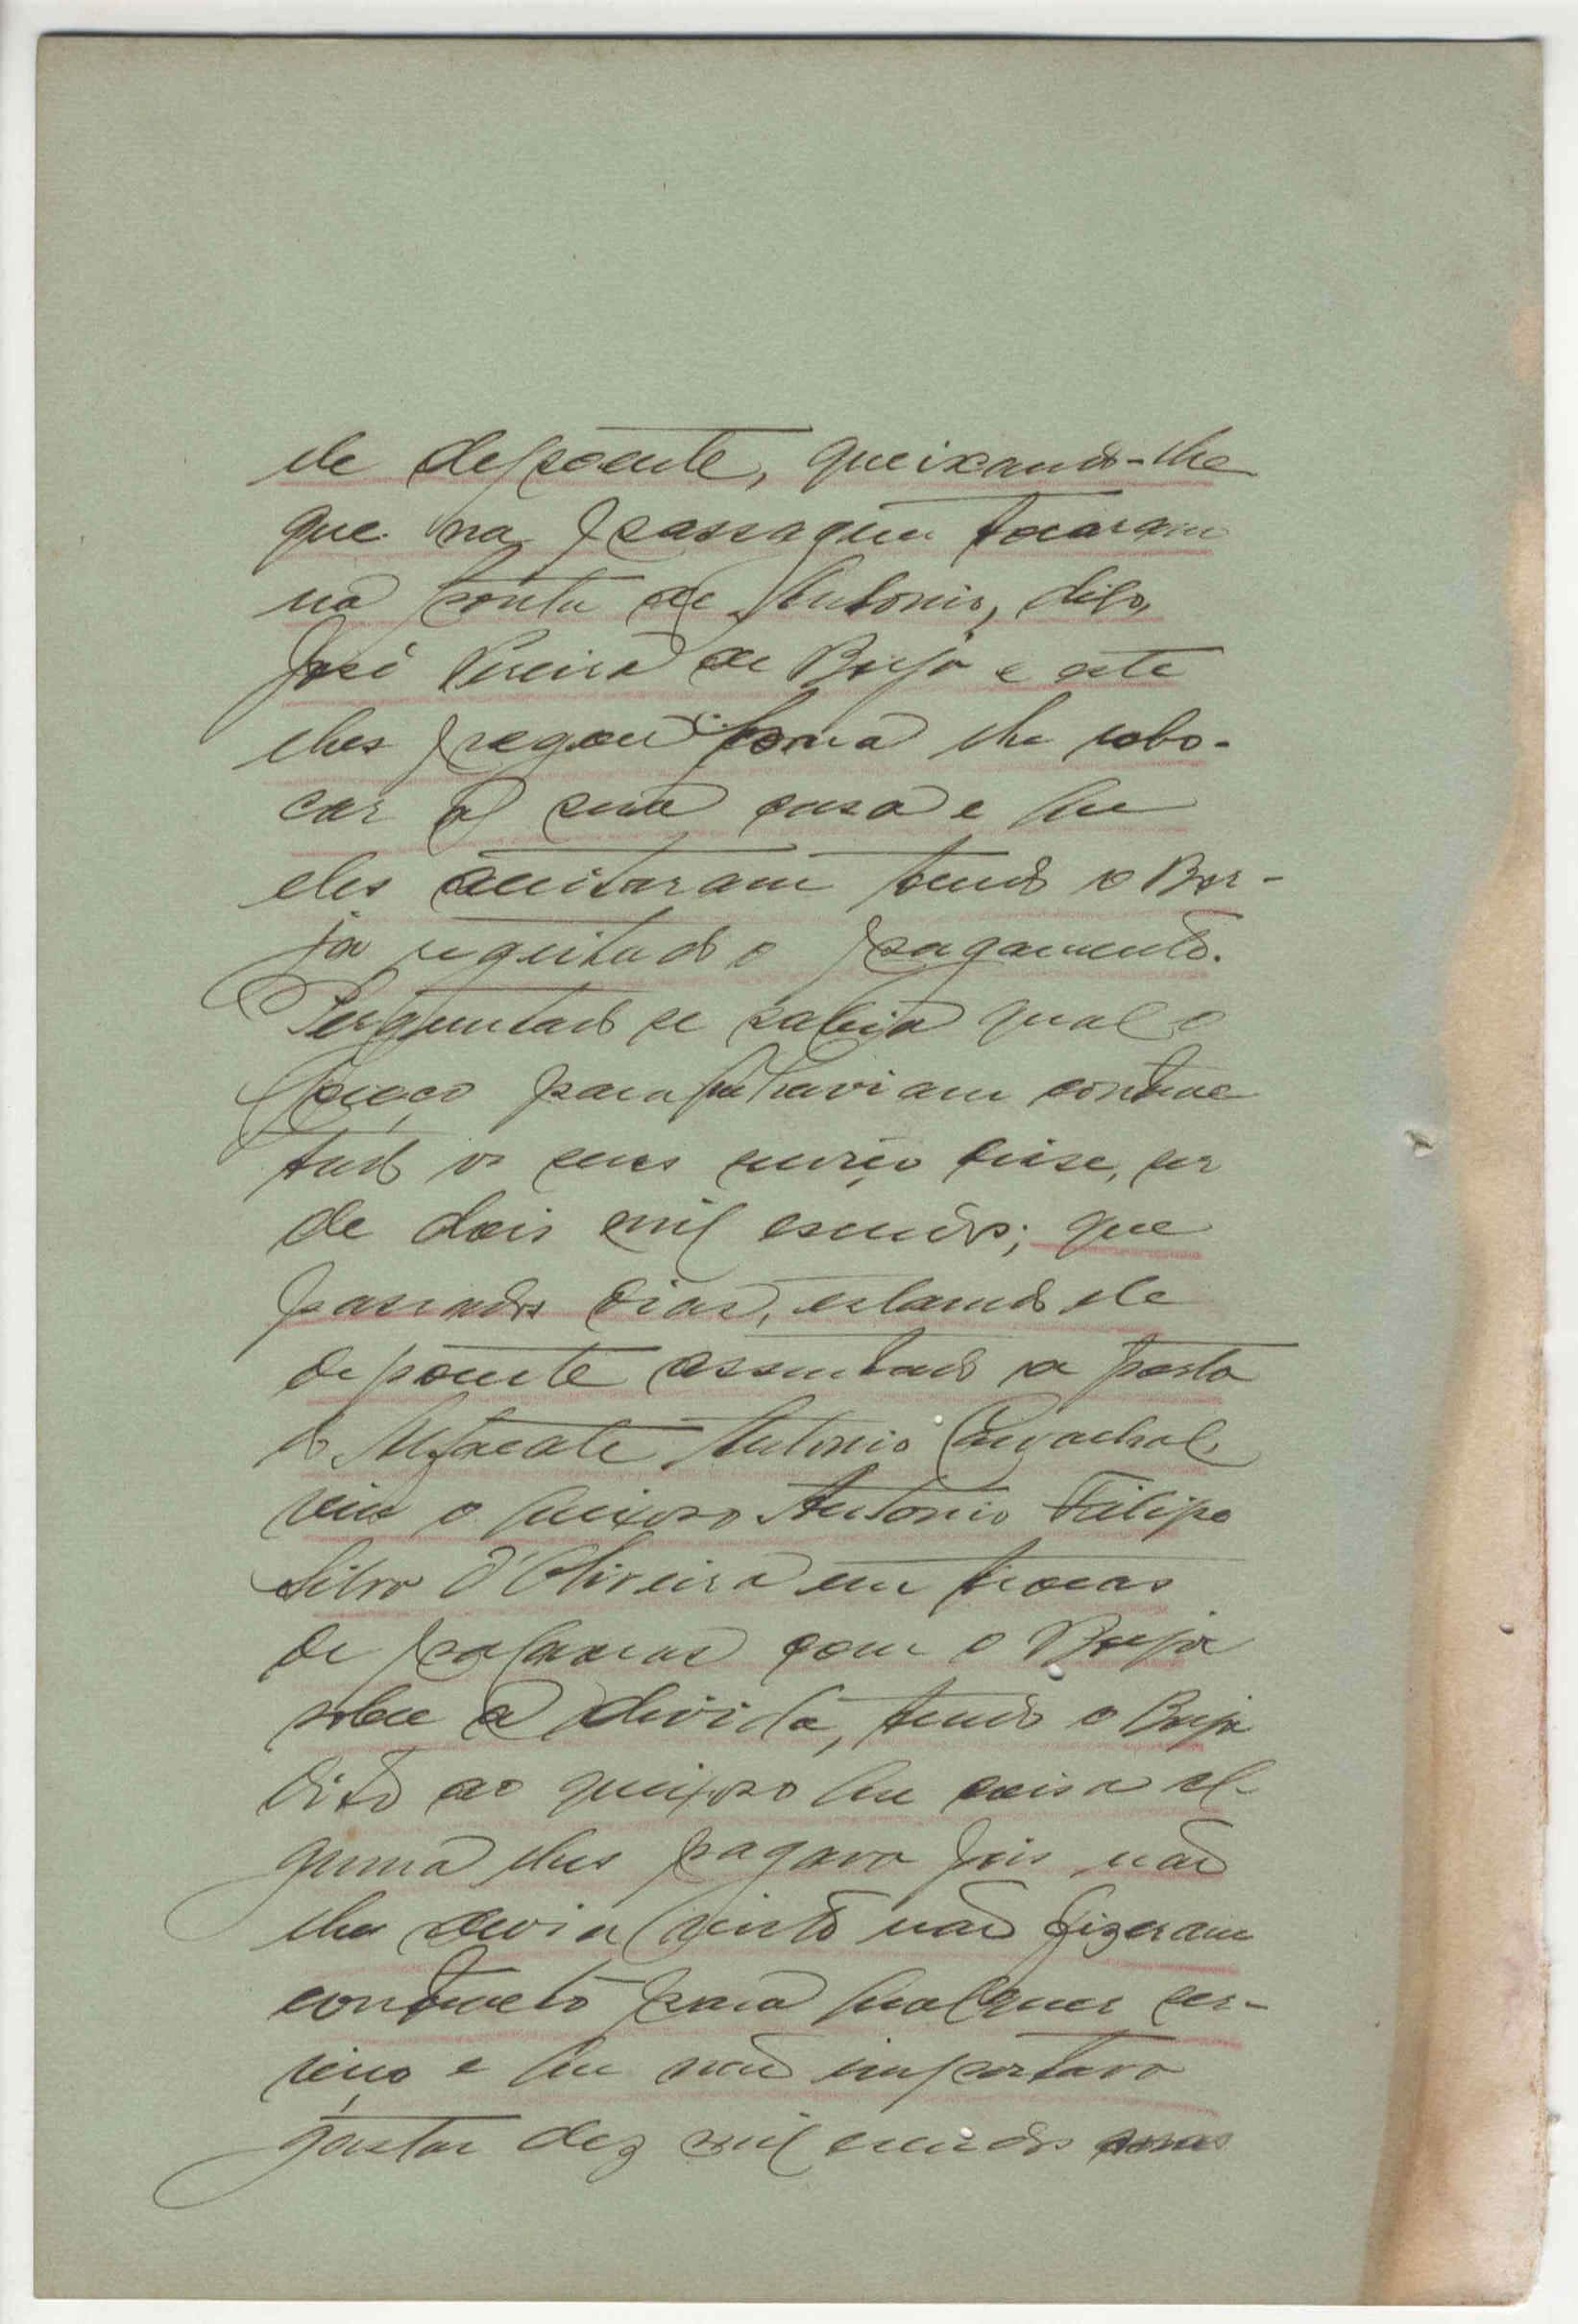 ele depoente, queixando-lhe
que na passagem tocaram
na porta de Antonio, digo,
José Pereira de Borja e este
lhes pregou para lhe rebo-
car a sua casa e que
eles aceitaram tendo o Bor-
ja regeitado o pagamento.
Perguntado se sabia qual o
preço para que haviam contrac
tado os seus serviço disse, ser
de dois mil escudos; que
passados dias, estando ele
depoente assentado a porta
do Alfaeate Antonio Carvachal,
viu o queixoso Antonio Filipe
Silva d'Oliveira em trocas
de palavras com o Borja
sobre a divida, tendo o Borja
dito ao queixoso que coisa al-
guma lhes pagava pois não
lhes devia visto não fizeram
contracto para qualquer ser-
viço e que não importava
gastar dez mil escudos mas